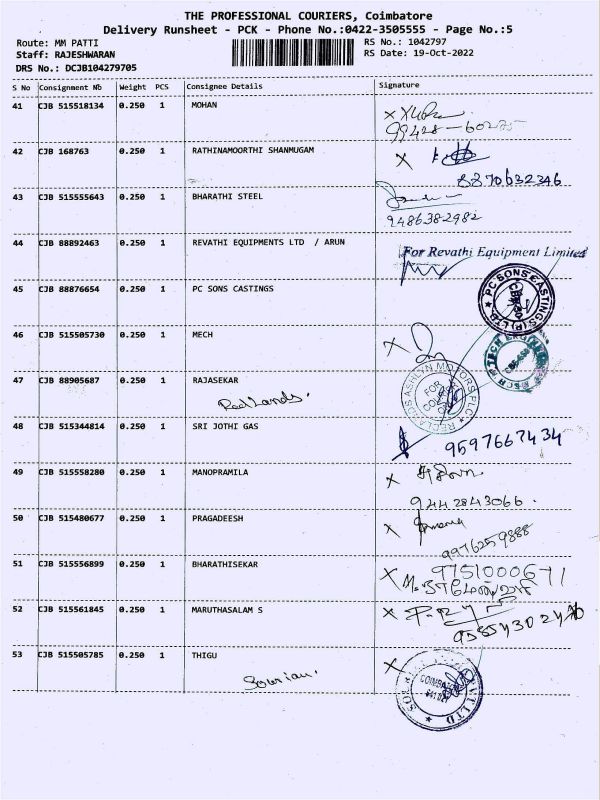 THE PROFESSIONAL COURIERS, Coimbatore
Delivery Runsheet - PCK - Phone No.:0422-3505555 - Page No.:5
Route: MM PATTI RS No.: 1042797
Staff: RAJESHWARAN RS Date: 19-Oct-2022
DRS No.: DCJB104279705
S No Consignment Nb Weight PCS Consignee Details Signature
41 CJB 515518134 0.250 1 MOHAN
99428-60275
42 CJB 168763 0.250 1 RATHINAMOORTHI SHANMUGAM
8870632346
43 CJB 515555643 0.250 1 BHARATHI STEEL
9486382982
44 CJB 88892463 0.250 1 REVATHI EQUIPMENTS LTD / ARUN
For Revathi Equipment Limited
45 CJB 88876654 0.250 1 PC SONS CASTINGS
46 CJB 515505730 0.250 1 MECH
47 CJB 88905687 0.250 1 RAJASEKAR
Redlands.
48 CJB 515344814 0.250 1 SRI JOTHI GAS
9597667434
49 CJB 515558280 0.250 1 MANOPRAMILA
9442843066.
50 CJB 515480677 0.250 1 PRAGADEESH
9976259888
51 CJB 515556899 0.250 1 BHARATHISEKAR
9751000671
52 CJB 515561845 0.250 1 MARUTHASALAM S
53 CJB 515505785 0.250 1 THIGU